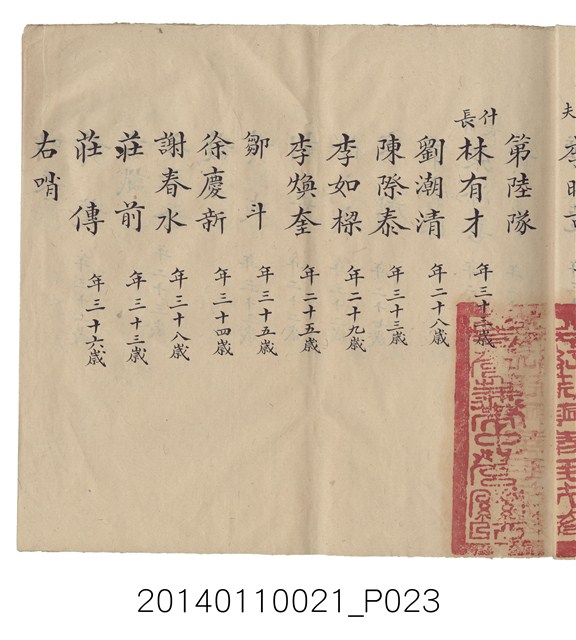 夫
第陸隊
什長 林有才 年三十二歲
劉潮清 年二十八歲
陳際泰 年三十三歲
李如樑 年二十九歲
李煥奎 年二十五歲
鄒斗 年三十五歲
徐慶新 年三十四歲
謝春水 年三十八歲
莊前 年三十三歲
莊傳 年三十六歲
右哨
20140110021_P023